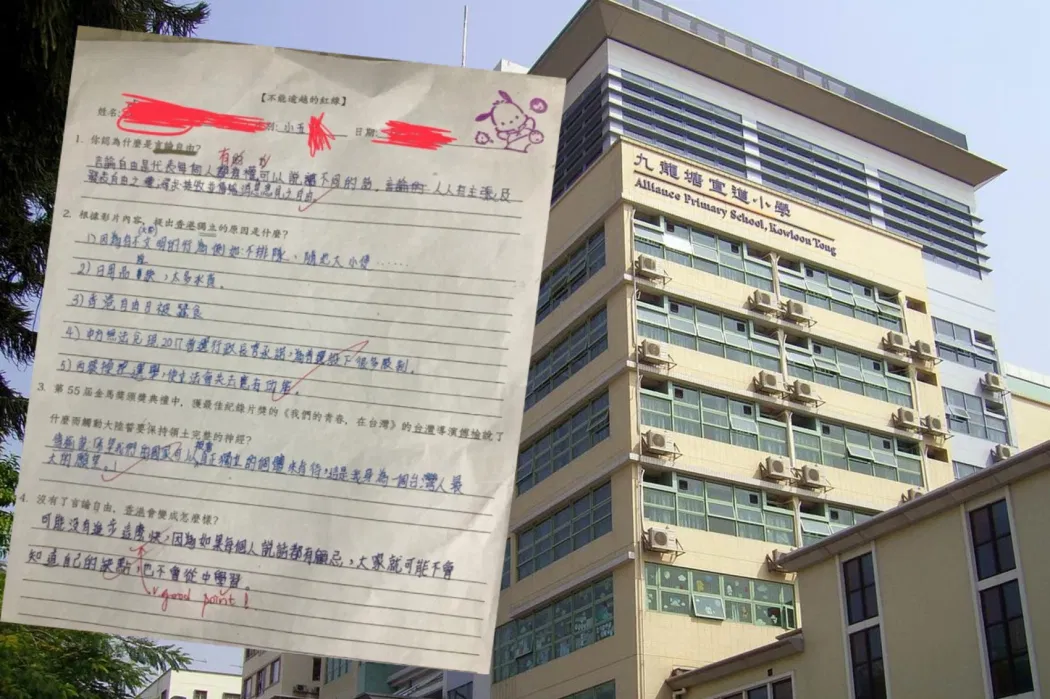 【不能逾越的紅線】
姓名: 別: 小五 日期:
1. 你認為什麼是言論自由?
有的
言論自由是代表每個人都有權可以說 不同的話, 人人有主張,及
發表自由之
2. 根據影片內容,提出香港獨立的原因是什麼?
1) 因為有不文明的行為例如:不排隊、隨地大小便......
2) 日用品 ,太多水貨。
3) 香港自由日被蠶食
4) 中方無法兌現2017普選行政長官承諾,為普選設下很多限制。
5)
3. 第 55 屆金馬獎頒獎典禮中,獲最佳紀錄片獎的《我們的青春,在台灣》的台灣導演傅榆說了
什麼而觸動大陸誓要保持領土完整的神經?
希望我們的國家可以 真正獨立的個體來看待,這是我身為一個台灣人最
大的願望。」
4. 沒有了言論自由,香港會變成怎麼樣?
可能沒有進步這麼快,因為如果每個人說話都有顧忌,大家就可能不會
知道自己的缺點,也不會從中學習。
good point!
九龍塘宣道小學
Alliance Primary School, Kowloon Tong